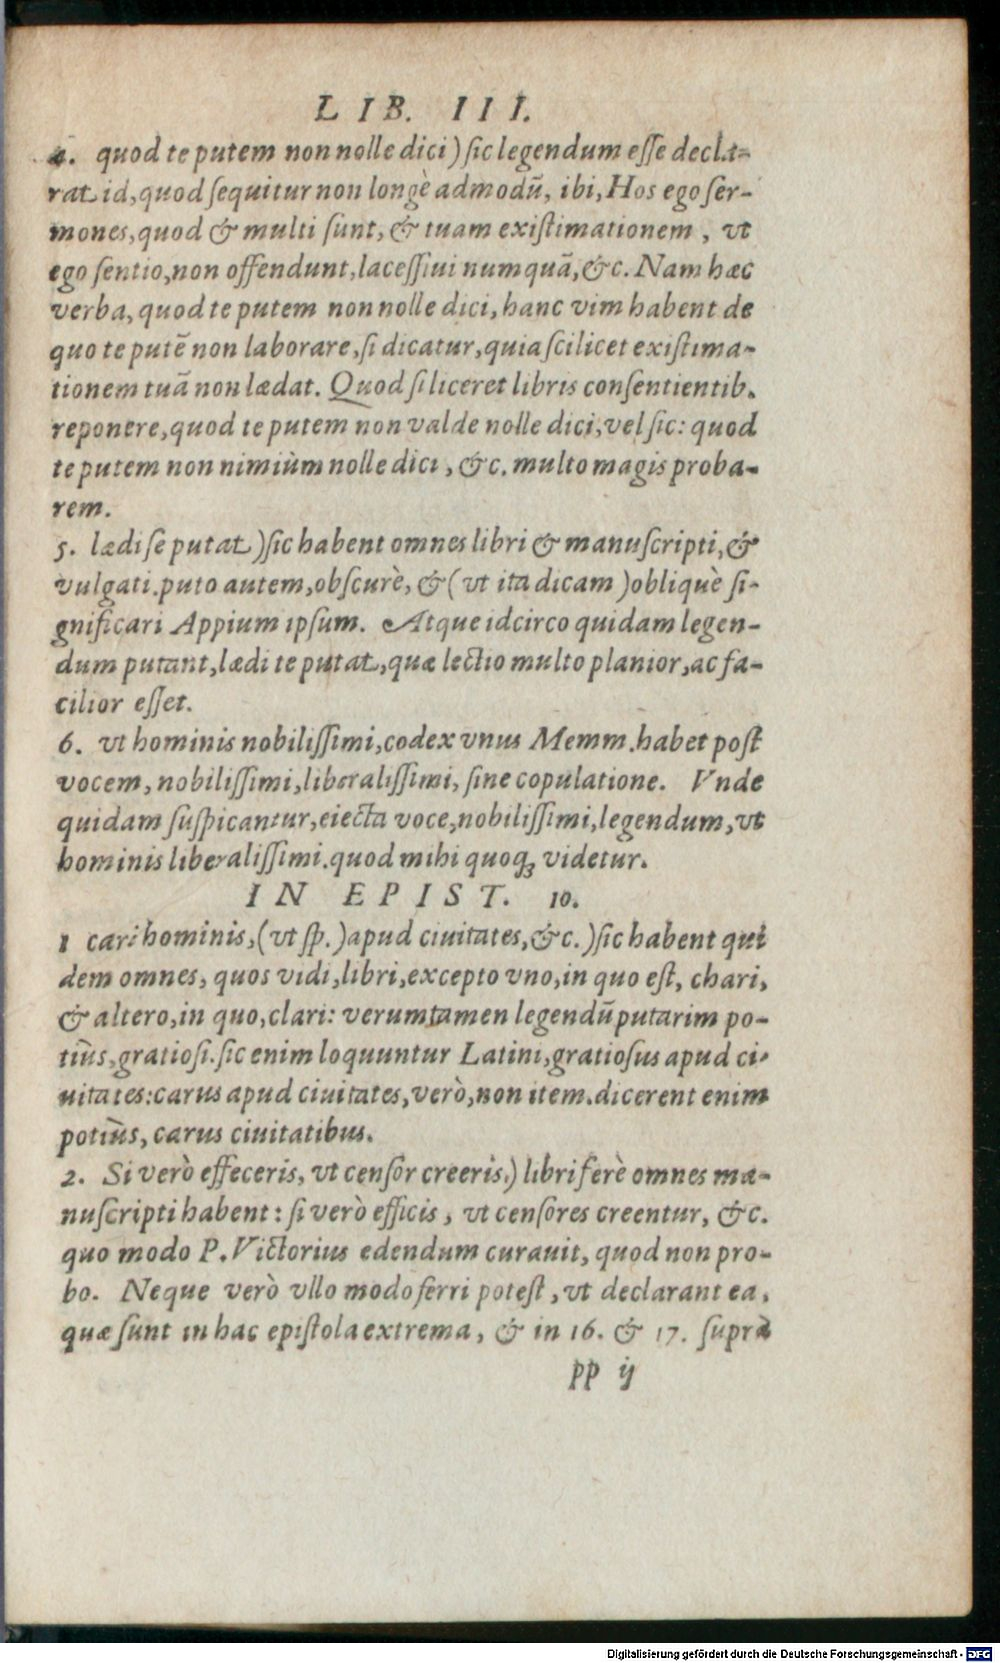 LIB. III.
4. quod te putem non nolle dici) sic legendum esse decla-
rat id, quod sequitur non longè admodũ, ibi, Hos ego ser-
mones, quod & multi sunt, & tuam existimationem, vt
ego sentio, non offendunt, lacessiui numquã, &c. Nam hæc
verba, quod te putem non nolle dici, hanc vim habent de
quo te putẽ non laborare, si dicatur, quia scilicet existima-
tionem tuã non lædat. Quod si liceret libris consentientib.
reponere, quod te putem non valde nolle dici, vel sic: quod
te putem non nimiùm nolle dici, &c. multo magis proba-
rem.
5. lædi se putat) sic habent omnes libri & manuscripti, &
vulgati. puto autem, obscurè, & (vt ita dicam) obliquè si-
gnificari Appium ipsum. Atque idcirco quidam legen-
dum putant, lædi te putat, quæ lectio multo planior, ac fa-
cilior esset.
6. vt hominis nobilissimi, codex vnus Memm. habet post
vocem, nobilissimi, liberalissimi, sine copulatione. Vnde
quidam suspicantur, eiecta voce, nobilissimi, legendum, vt
hominis liberalissimi. quod mihi quoqꝫ videtur.
IN EPIST. 10.
1 cari hominis, (vt sp.) apud ciuitates, &c.) sic habent qui
dem omnes, quos vidi, libri, excepto vno, in quo est, chari,
& altero, in quo, clari: verumtamen legendũ putarim po-
tiùs, gratiosi. sic enim loquuntur Latini, gratiosus apud ci-
uitates: carus apud ciuitates, verò, non item. dicerent enim
potiùs, carus ciuitatibus.
2. Si verò effeceris, vt censor creeris.) libri ferè omnes ma-
nuscripti habent: si verò efficis, vt censores creentur, &c.
quo modo P. Victorius edendum curauit, quod non pro-
bo. Neque verò vllo modo ferri potest, vt declarant ea,
quæ sunt in hac epistola extrema, & in 16. & 17. suprà
pp ij
Digitalisierung gefördert durch die Deutsche Forschungsgemeinschaft - DFG